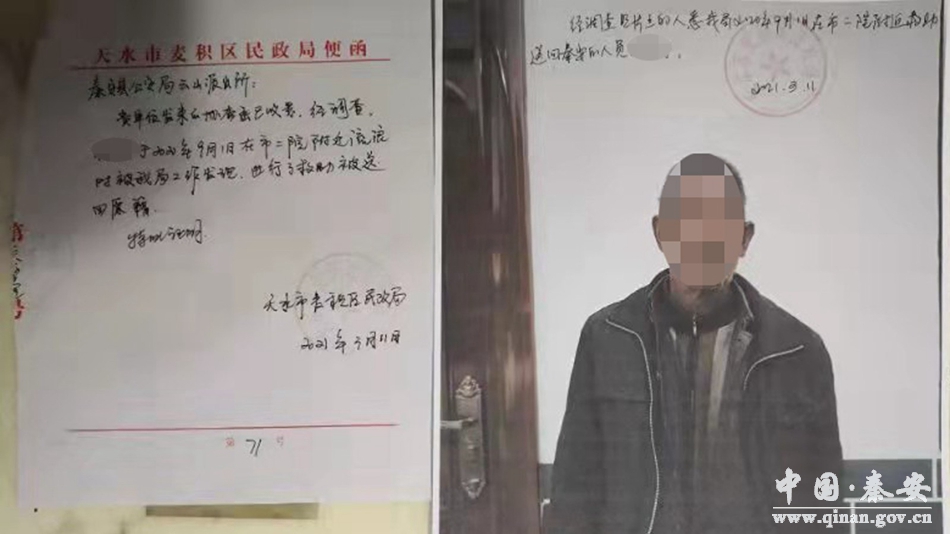 天水市麦积区民政局便函
秦安县公安局云山派出所：
贵单位发来的协查函已收悉，经调查，
于2020年9月1日在市二院附近
时被我局工作发现，进行了救助被送
回原籍．
特此证明．
天水市麦积区民政局
2021年3月11日
第 71 号
经调查照片上的人悉我局2020年9月1日在市二院附近救助
送回秦安的人员
2021.3.11
中国·秦安
www.qinan.gov.cn